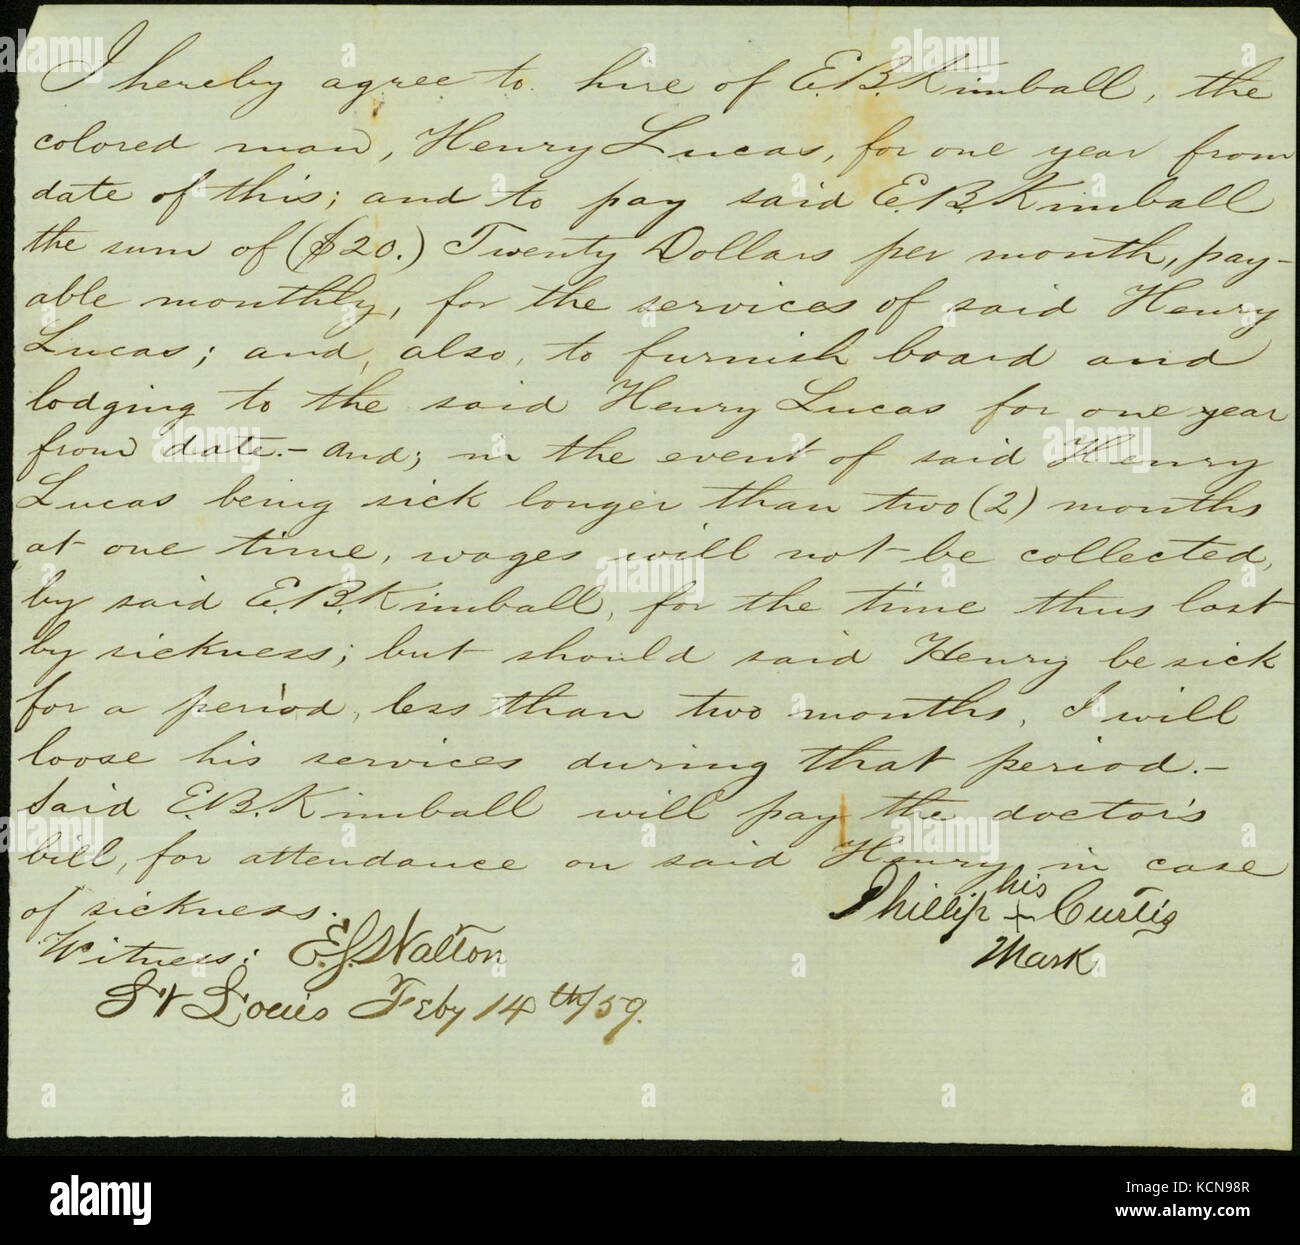 I hereby agree to hire of E.B. Kimball, the
colored man, Henry Lucas, for one year from
date of this; and to pay said E.B. Kimball
the sum of ($20.) Twenty Dollars per month, pay-
able monthly, for the services of said Henry
Lucas; and, also, to furnish board and
lodging to the said Henry Lucas for one year
from date.- and; in the event of said Henry
Lucas being sick longer than two (2) months
at one time, wages will not be collected,
by said E.B. Kimball, for the time thus lost
by sickness; but should said Henry be sick
for a period, less than two months, I will
loose his services during that period.-
Said E.B. Kimball will pay the doctor's
bill, for attendance on said Henry, in case
of sickness.
Phillip his + Curtis
Mark
Witness: E.J. Walton
St Louis Feby 14th/59.
alamy
Image ID: KCN98R
www.alamy.com